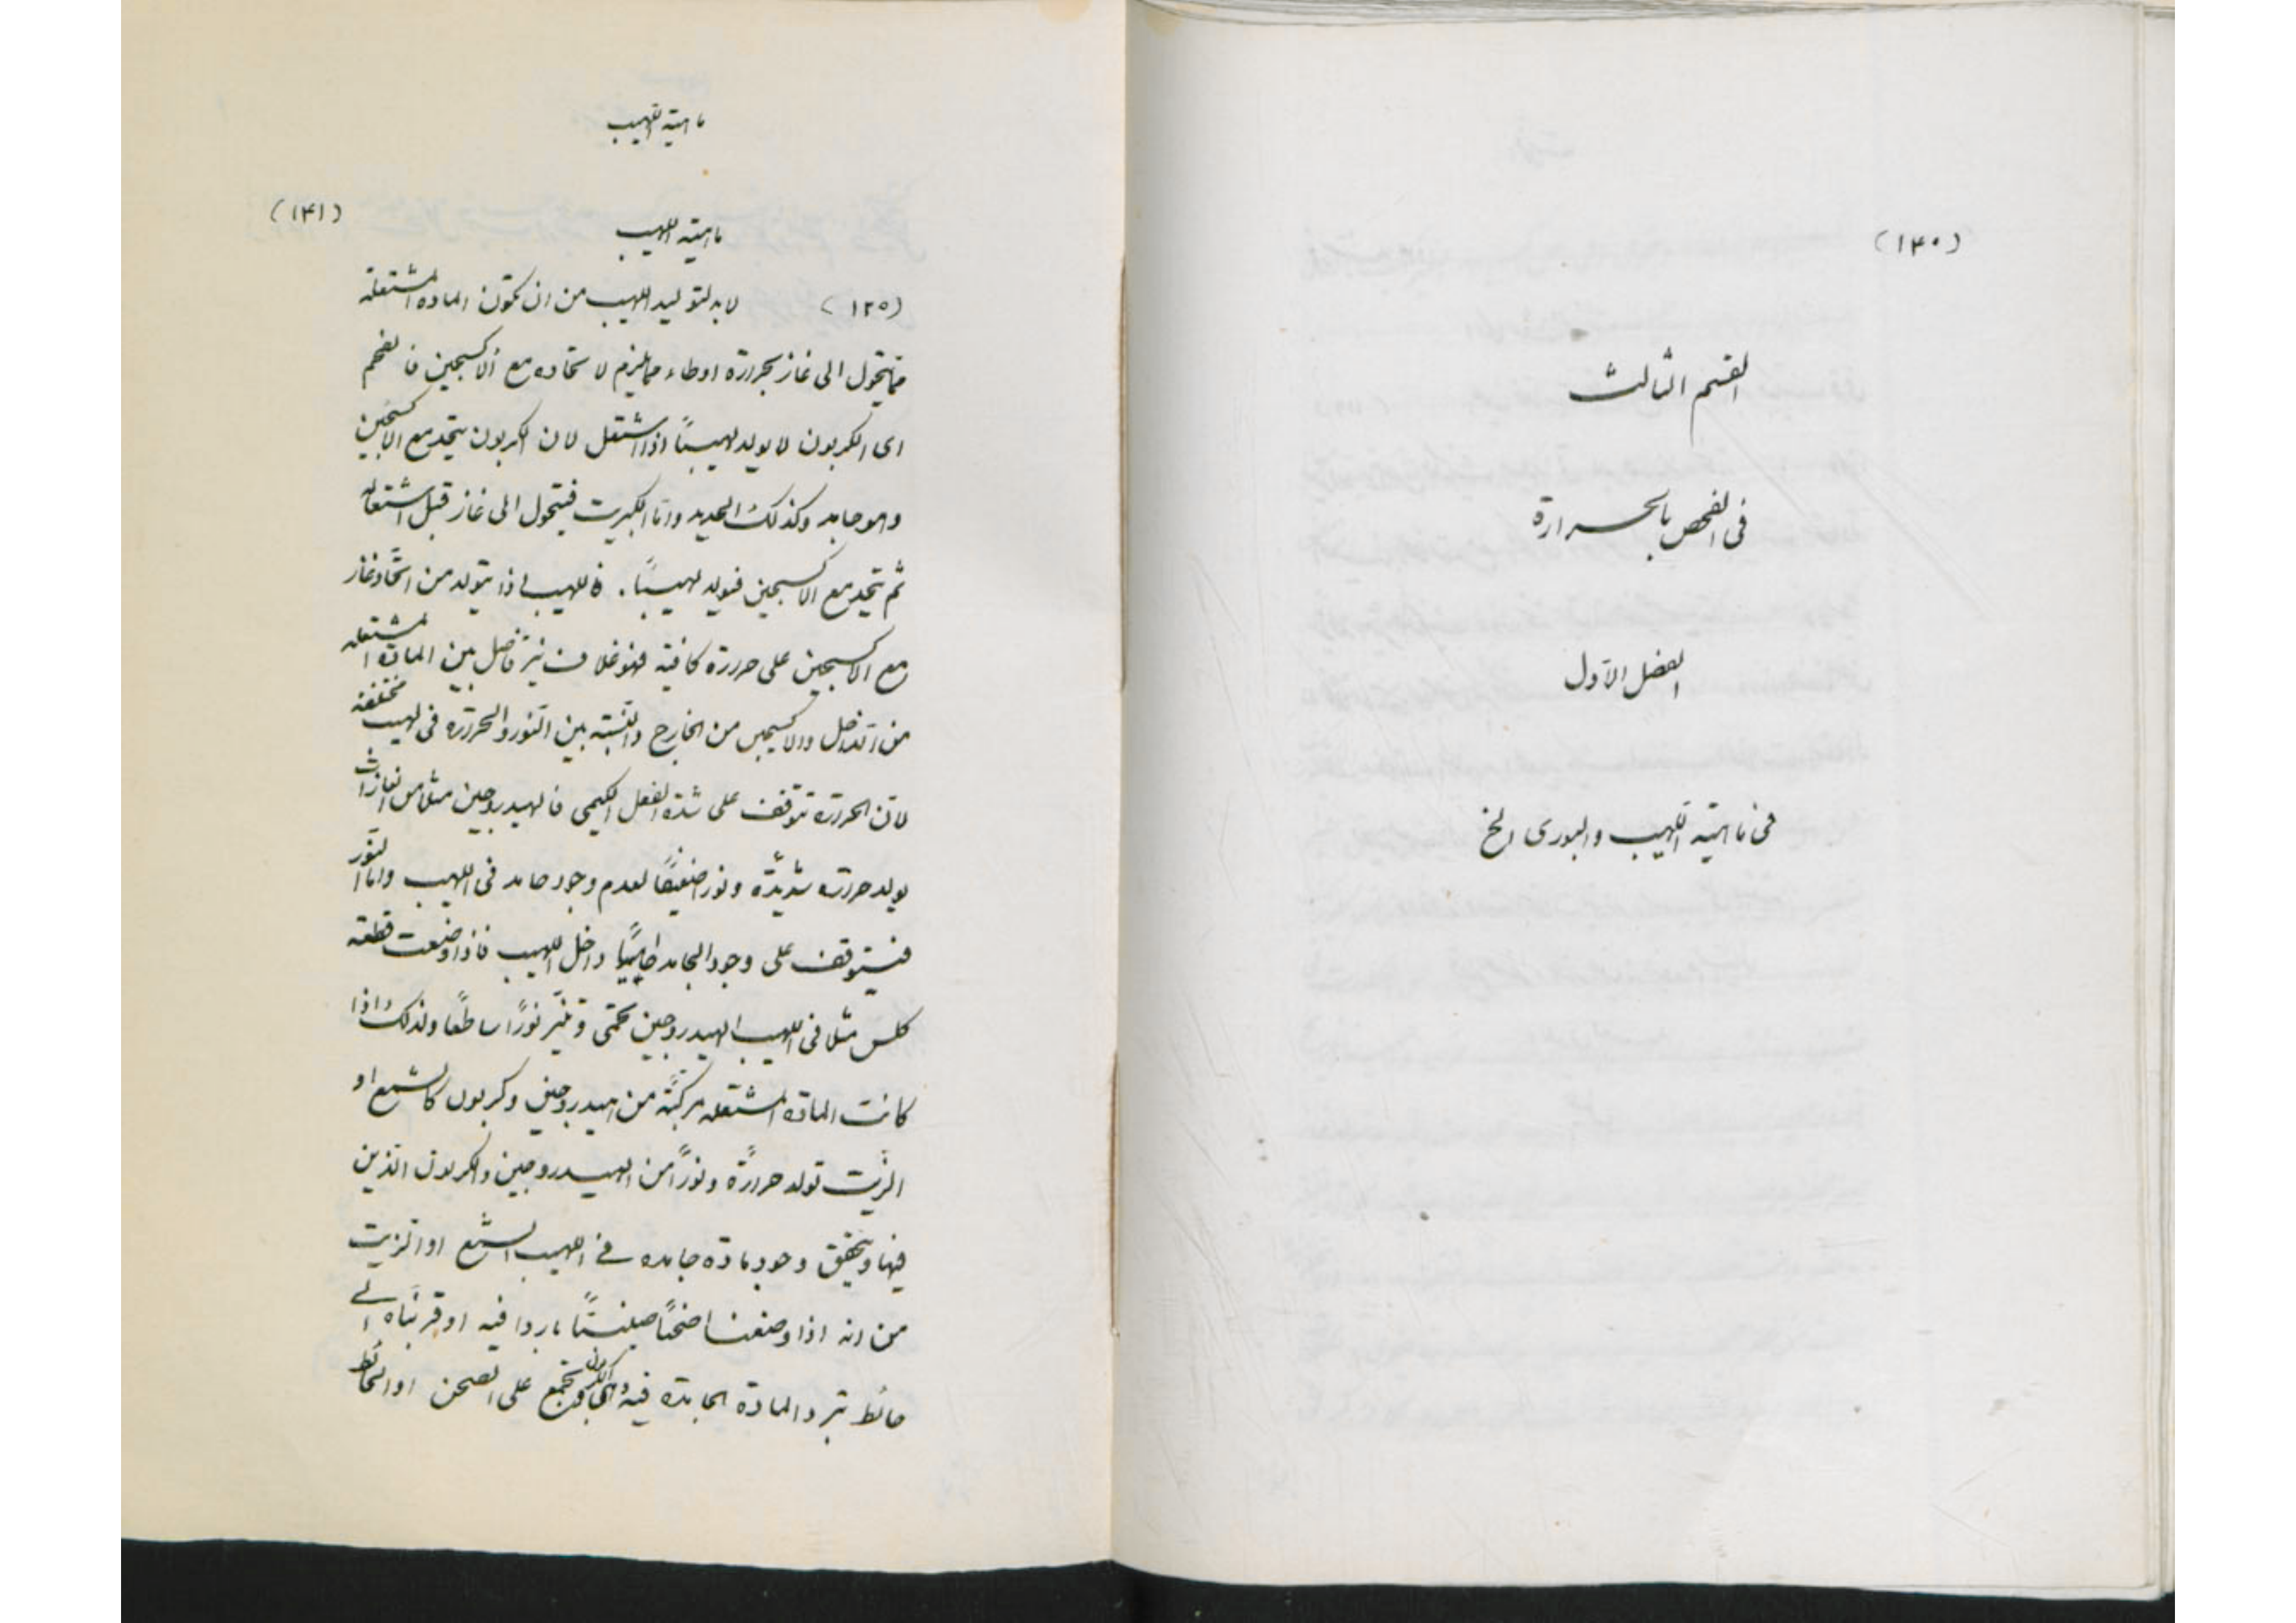 (۱۴۰)
القسم الثالث
فى الفحص بالحرارة
الفصل الاول
فى ماهية اللهيب والبورى الخ
ماهية اللهيب
(۱۴۱)
ماهية اللهيب
(١٢٥) لابد لتوليد اللهيب من ان تكون المادة المشتعلة
مما يتحول الى غاز بحرارة اوطاء مما يلزم لاتحاده مع الاكسجين فالفحم
اى الكربون لا يولد لهيبًا اذا اشتعل لان الكربون يتحد مع الاكسجين
وهو جامد وكذلك الحديد واما الكبريت فيتحول الى غاز قبل اشتعاله
ثم يتحد مع الاكسجين فيولد لهيبًا. فاللهيب اذا يتولد من اتحاد غاز
مع الاكسجين على حررة كافية فهو غلاف نير فاصل بين المادة المشتعله
من الداخل والاكسجين من الخارج والنسبة بين النور والحررة فى لهيب مختلفة
لان الحررة تتوقف على شدة الفعل الكيمى فالهيدروجين مثلا من الغازات
يولد حررة شديدة ونورا ضعيفًا لعدم وجود جامد فى اللهيب واما النور
فيتوقف على وجود الجامد حاميًا داخل اللهيب فاذا وضعت قطعة
كلس مثلا فى اللهيب الهيدروجين تحمى وتنير نورًا ساطعًا ولذلك اذا
كانت المادة المشتعله مركبة من هيدروجين وكربون كالشمع او
الزيت تولد حررة ونورًا من الهيدروجين والكربون الذين
فيها ويتحقق وجود مادة جامده فے اللهيب الشمع او الزيت
من انه اذا وضعنا صحنًا صينيًا باردا فيه او قربناه الے
حائط تبرد المادة الجامدة فيه وتجمع على الصحن او الحائط